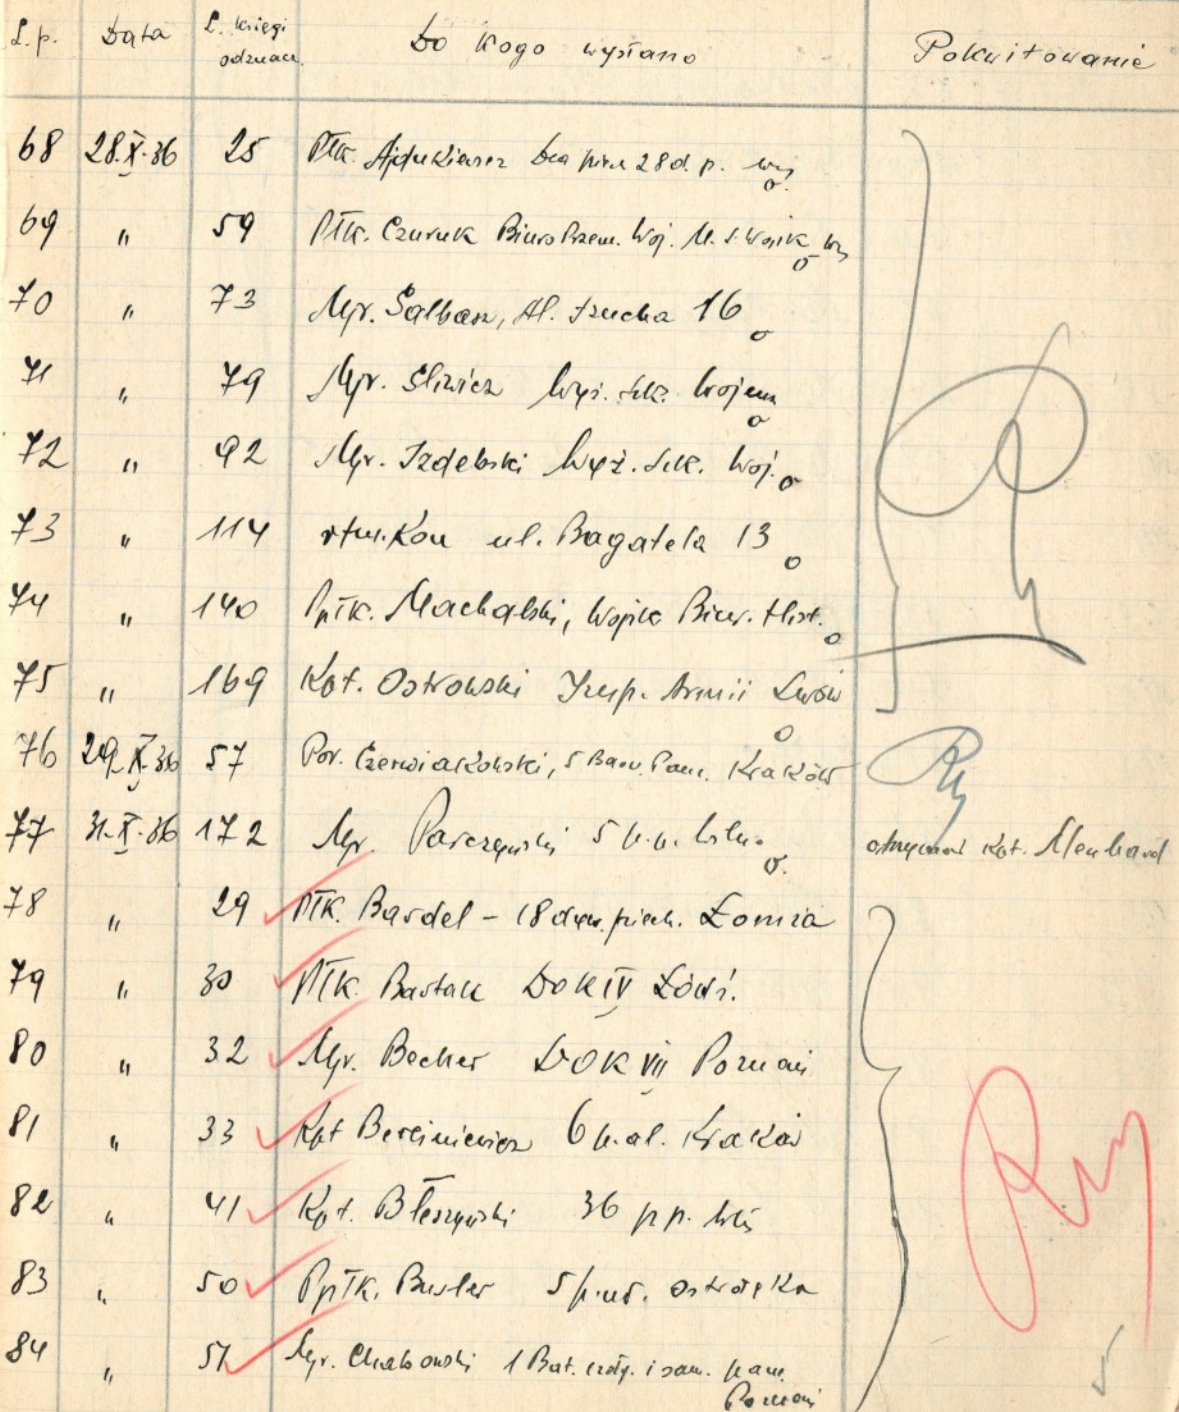 L.p. Data L. księgi odznacz. Do kogo wysłano Pokwitowanie
68 28.X.36 25 Płk. Ajdukiewicz dca piech 28 d. p. Wwa
69 " 59 Płk. Czuruk Biuro Przem. Woj. M. S. Wojsk Wwa
70 " 73 Mjr. Sałbasz, Al. Szucha 16
71 " 79 Mjr. Śliwicz Wyż. Szk. Wojenna
72 " 92 Mjr. Izdebski Wyż. Szk. Woj.
73 " 114 rtm. Kon ul. Bagatela 13
74 " 140 Ppłk. Machalski, Wojsk Biur. Hist.
75 " 169 Kpt. Ostrowski Insp. Armii Lwów
76 29.X.36 57 Por. Czerwiakowski, 5 Baon. Panc. Kraków
77 31.X.36 172 Mjr. Parczyński 5 p.p. Wilno otrzymał kpt. Menhard
78 " 29 Płk. Bardel – 18 dyw. piech. Łomża
79 " 30 Płk. Bartak DOK IV Łódź.
80 " 32 Mjr. Becher DOK VII Poznań
81 " 33 Kpt 6 p.al. Kraków
82 " 41 Kpt. Błeszyński 36 pp.
83 " 50 Ppłk. Busler 5 p.uł. Ostrołęka
84 " 51 Mjr. Chabowski 1 Bat. czołg. i sam. panc.
Poznań